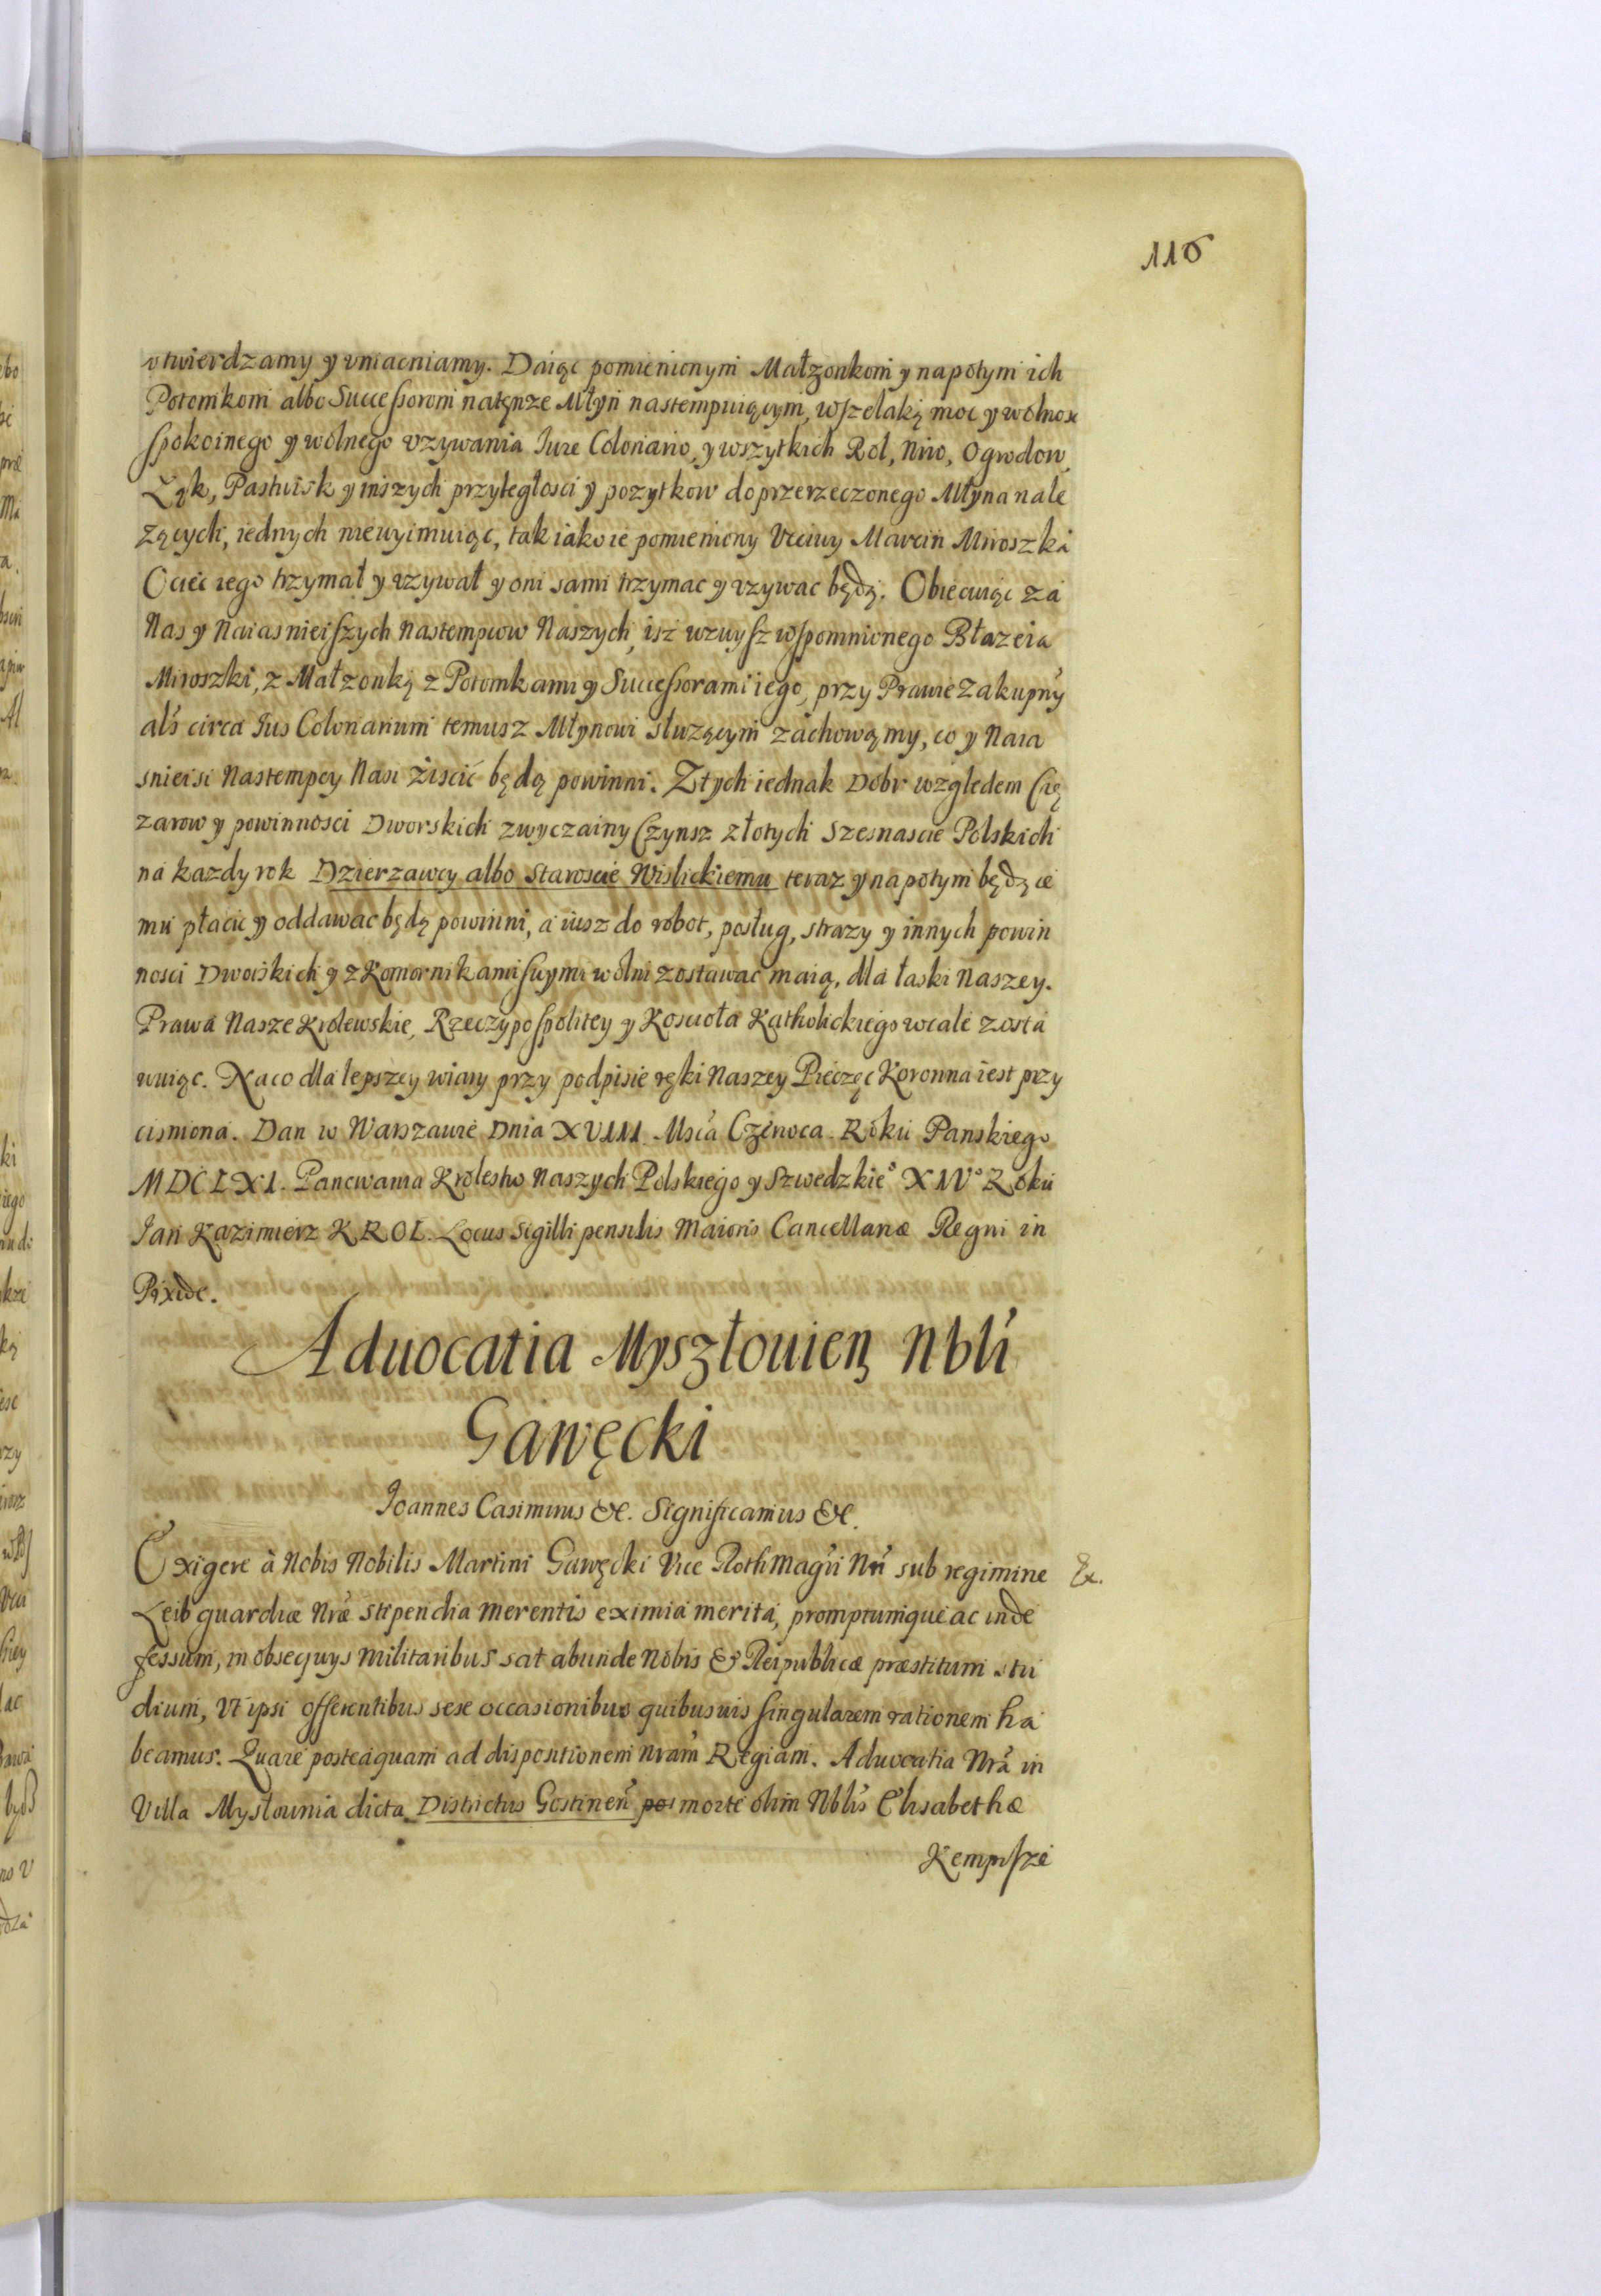 116
vtwierdzamy y vmacniamy. Daiąc pomienionym Małzonkom y napotym ich
Potomkom albo Successorom natęnze Młyn nastempuiącym, wszelaką moc y wolnosc
spokoinego y wolnego vzywania Iure Colonario, y wszytkich Rol, Niw, Ogrodow,
Łąk, Pastwisk y inszych przyległosci y pozytkow do przerzeczonego Młyna nale
zących, iednych niewyimuiąc, tak iako ie pomieniony Vcciwy Marcin Miroszka
Ociec iego trzymał y vzywał y oni sami trzymac y vzywac będą. Obiecuiąc za
Nas y Naiasnieiszych Nastempcow Naszych, isz wzwysz wspomnionego Błazeia
Miroszki, z Małzonką z Potomkami y Successorami iego, przy Prawie Zakupny
als circa Ius Colonarium temusz Młynowi słuzącym zachowamy, co y Naia
snieisi Nastempcy Nasi ziscić będą powinni. Z tych iednak Dobr względem Cię
zarow y powinnosci Dworskich zwyczainy Czynsz złotych szesnascie Polskich
na kazdy rok Dzierzawcy albo Staroscie Wislickiemu teraz y napotym będące
mu płacic y oddawac będą powinni, a iusz do robot, posług, strazy y innych powin
nosci Dworskich y z Komornikami swymi wolni zostawac maią, dla łaski Naszey.
Prawa Nasze Krolewskie, Rzeczypospolitey y Koscioła Katholickiego wcale zosta
wuiąc. Na co dla lepszey wiary przy podpisie ręki Naszey Pieczęc Koronna iest przy
cisniona. Dan w Warszawie Dnia XVIII. Msca Czerwca Roku Panskiego
MDCLXI. Panowania Krolestw Naszych Polskiego y Szwedzkieº XIVº Roku
Jan Kazimierz KROL. Locus Sigilli pensilis Maioris Cancellariæ Regni in
Pixide.
Aduocatia Myszłouien Nbli
Gawęcki
Ioannes Casimirus &c. Significamus &c.
Exigere à Nobis Nobilis Martini Gawęcki Vice RothMagri Nri sub regimine
Ex.
Leib guardiæ Nræ stipendia merentis eximia merita, promptumque ac inde
fessum, in obsequys militaribus sat abunde Nobis & Reipublicæ præstitum stu
dium, Vt ipsi offerentibus sese occasionibus quibusuis singularem rationem ha
beamus. Quare posteaquam ad dispositionem Nram Regiam. Aduocatia Nra in
Villa Mysłounia dicta Districtus Gostinen morte olim Nblis Elisabethæ